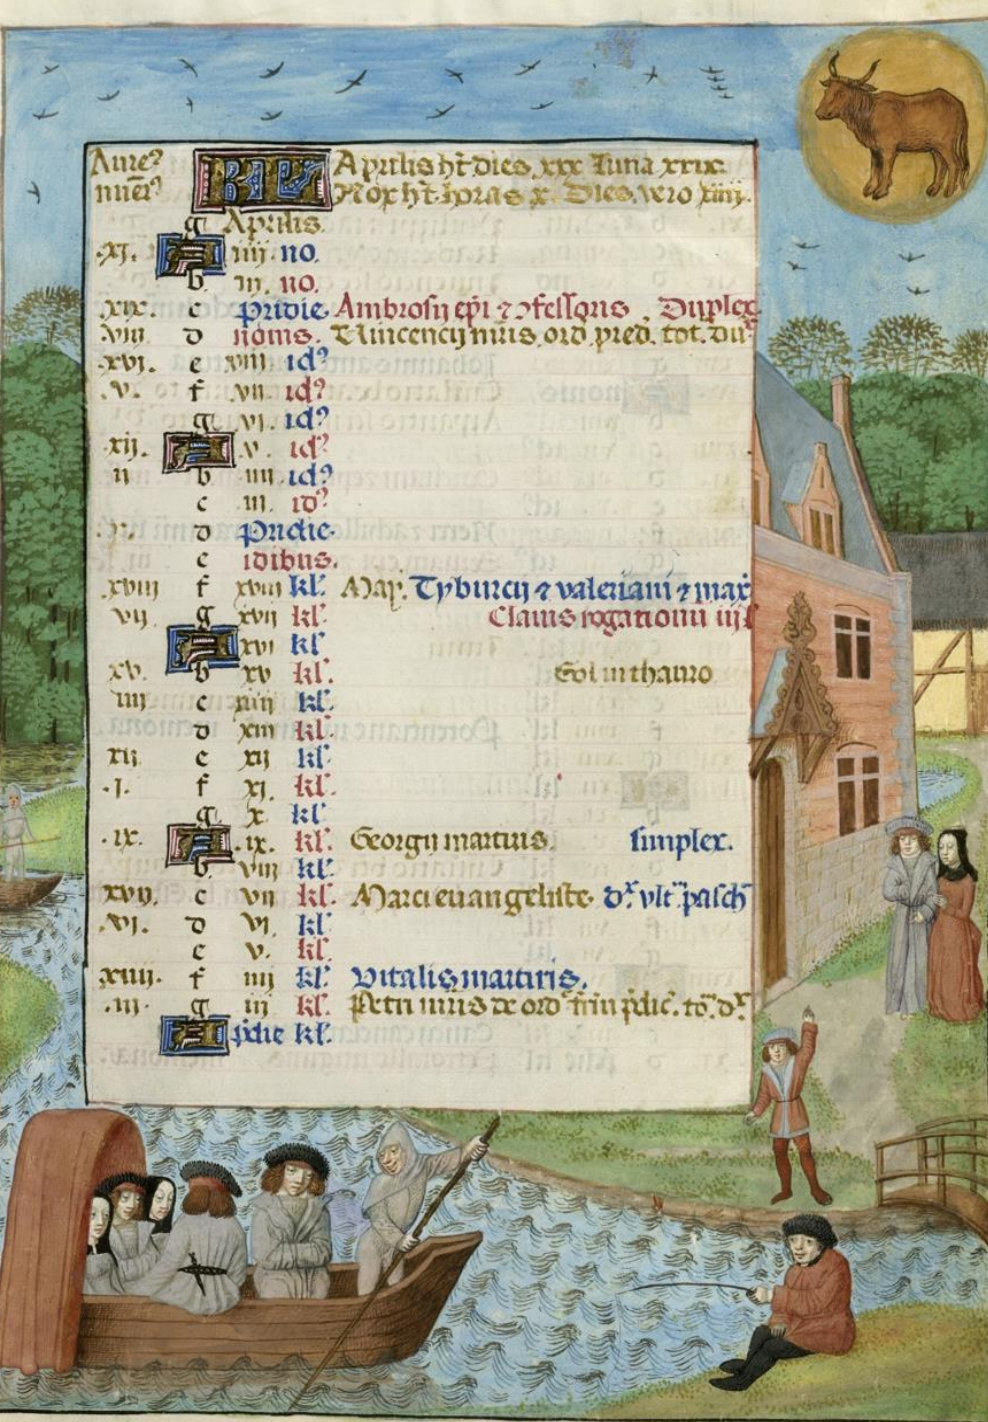 Auree? KL Aprilis ht dies xxx luna xxix.
nuer? Nox ht horas x. Dies vero xiiij.
g Aprilis.
.xj. A iiij. no.
b. iij. no.
xix. c pridie Ambrosij epi ⁊ ꝯfessoris. Duplex
viij d nonis. Vincencij mris ord pred. tot. du
.xvi. e viij id?
.v. f .vij. id?
g vj. id?
.xij. A .v. id?
ij b iiij id?
c iij. id?
d pridie.
e idibus.
xviij f xviij kl. May. Tyburcij ⁊ valeriani ⁊ max
vij. g xvij kl. Clauis rogationu iij
A xvi kl
xv. b xv kl. Sol in thauro
iiij c xiiij kl.
d xiij kl.
xij. e xij kl
.j. f xj. kl.
g .x. kl
.ix. A .ix. kl. Georgij martiris. simplex.
b. viij kl.
xvij. c vij kl. Marci euangeliste. dx vlt pasch
.vj. d vj. kl
e v. kl.
xiiij. f iiij kl. Vitalis martiris.
.iij. g iij kl. Petri mris de ord frm pdic. to. dx
A pdie kl.